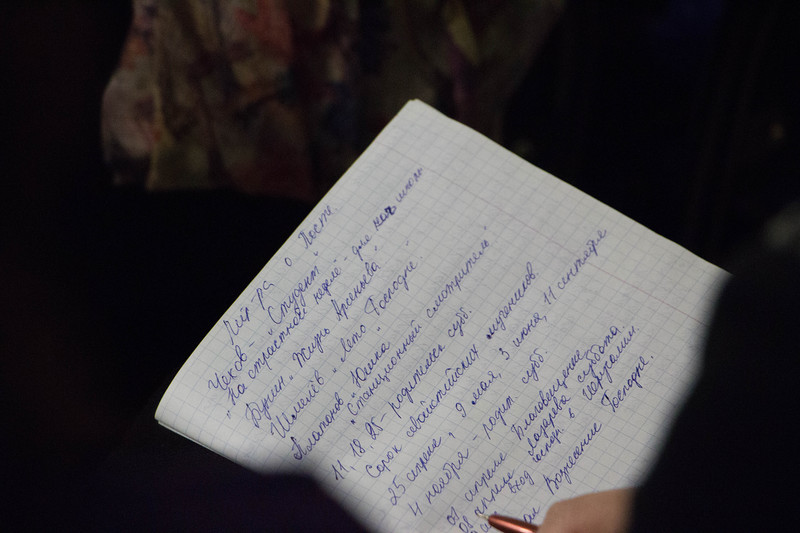 Лит-ра о Посте.
Чехов - "Студент"
"На страстной неделе" - для нач. школы
Бунин "Жизнь Арсеньева"
Шмелёв "Лето Господне".
Платонов "Юшка"
"Станционный смотритель"
11, 18, 25 - родительск. субб.
Сорок севастийских мучеников.
25 апреля, 9 мая, 3 июня, 11 сентября
4 ноября - родит. субб.
07 апреля Благовещение
Лазарева суббота.
апреля Вход Господ. в Иерусалим.
Вознесение Господне.